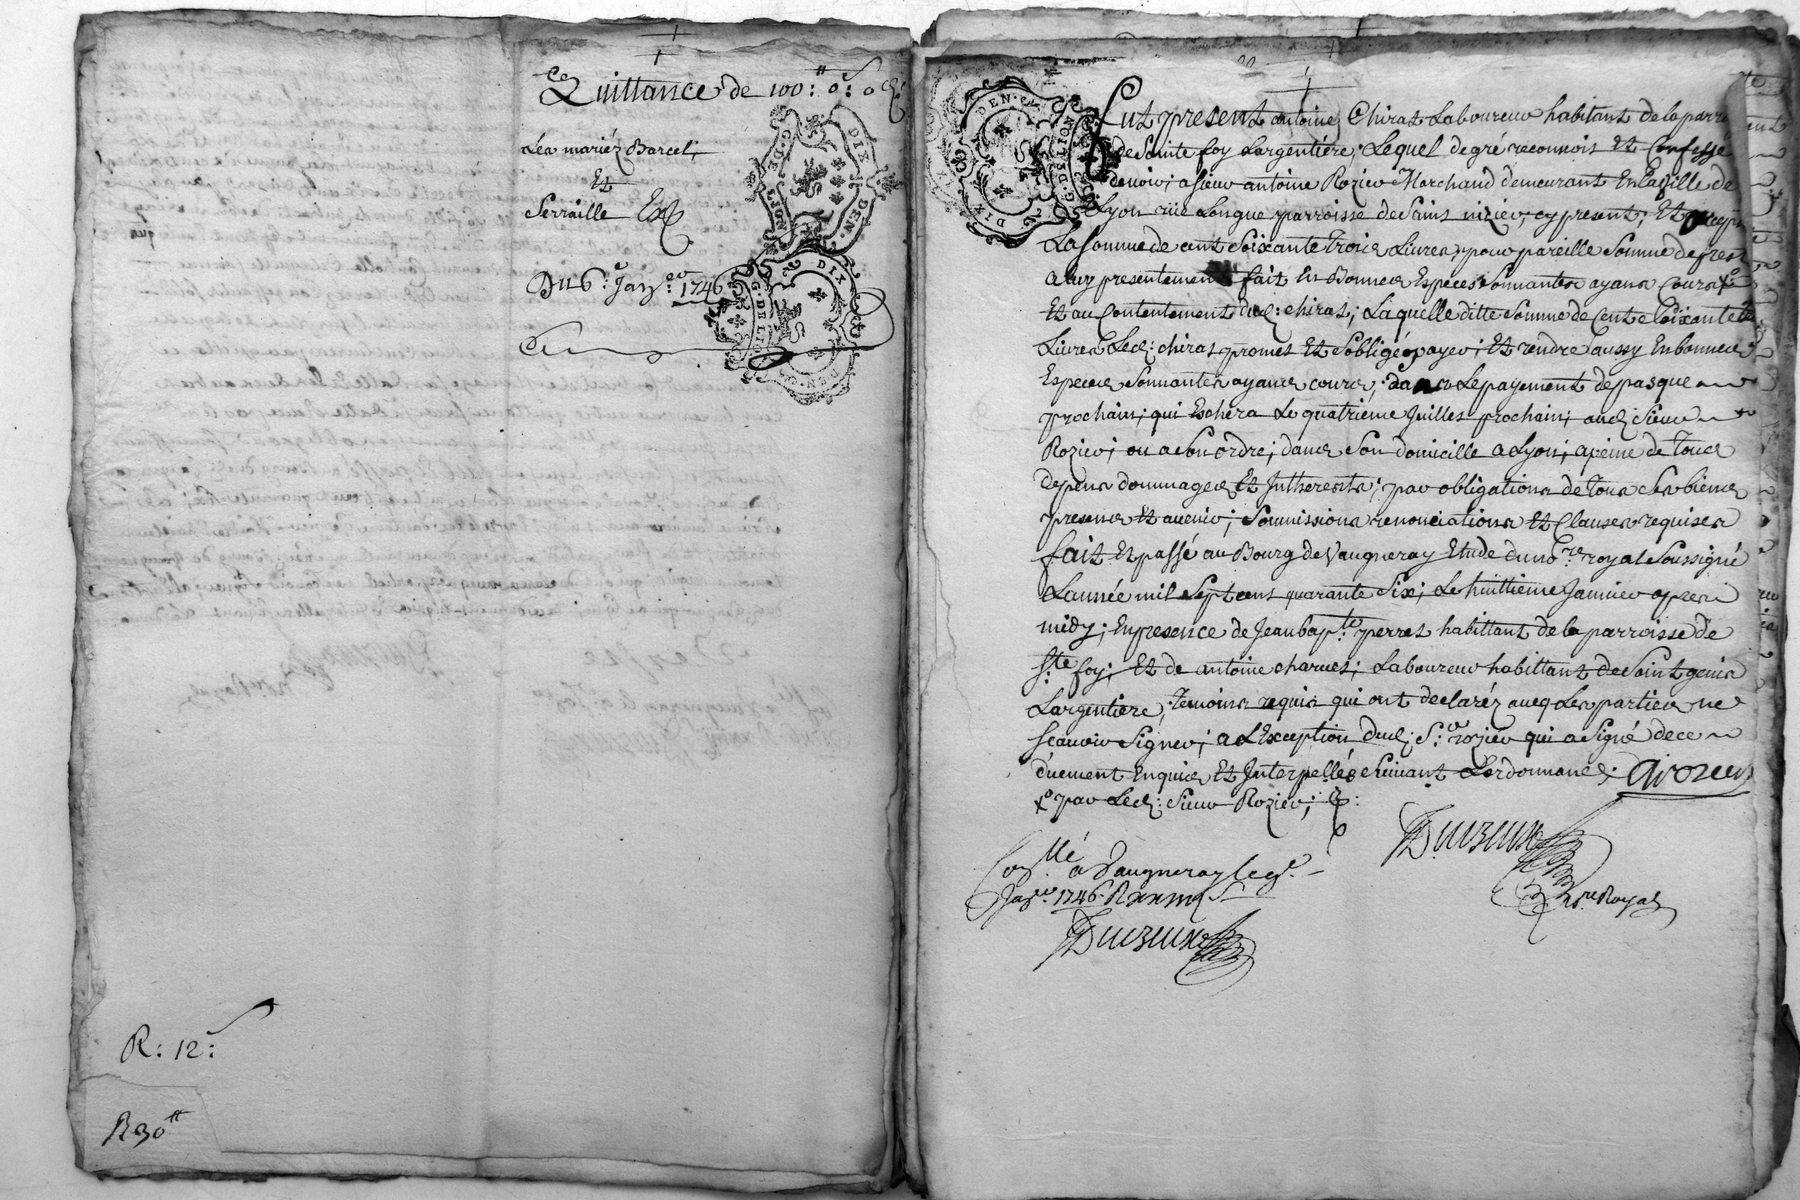 Quittance de 100:" o: o
Les mariez Barcel,
Et
Serraille
Du 6.e Janv.er 1746
R: 12:
R 30"
Fut present antoine Chirat Laboureur habitant de la parr
de Sainte foy Largentiére; Lequel de gré reconnois Et Confesse
devoir; a sieur antoine Rozier Marchand demeurant En La Ville de
Lyon rüe Longue parroisse de Saint nizier, cy present; Et
La somme de cent soixante trois Livres; pour pareille Somme de
a Luy presentement fait En Bonnes Especes Sonnantes ayans Cours xo
Et au Contentement dud: chirat; Laquelle ditte Somme de Cent Soixante
Livres Led: chirat promet Et s'obligé payer; Et rendre aussy En bonnes
Especes Sonnantes ayans cours; dans Le payement de pasque
prochain; qui Eschera Le quatrieme Juillet prochain; aud: Sieur
Rozier; ou a Son ordre; dans Son domicille a Lyon; a peine de tous
depens dommages Et Intherests; par obligations de tous Ses biens
presens Et avenir; Soumissions renonciations Et Clauses requises
fait Et passé au Bourg de Vaugneray Etude du no.re royal Soussigné
L'année mil Sept cent quarante Six; Le huittieme Janvier apres
midy; En presence de Jean bap.te perret habittant de la parroisse de
S.te foy; Et de antoine charvet; Laboureur habittant de Saint genis
Largentiere, temoins requis qui ont declaréz aveq Les parties ne
Scavoir Signer; a L'Exception dud: S.r rozier qui a Signé de ce
düement Enquis Et Interpellés Suivant L'ordonnance. arozier
xo par Led: Sieur Rozier;
Con.llé a Vaugneray Le 9.e
Janv.er 1746. R
no.re Royal